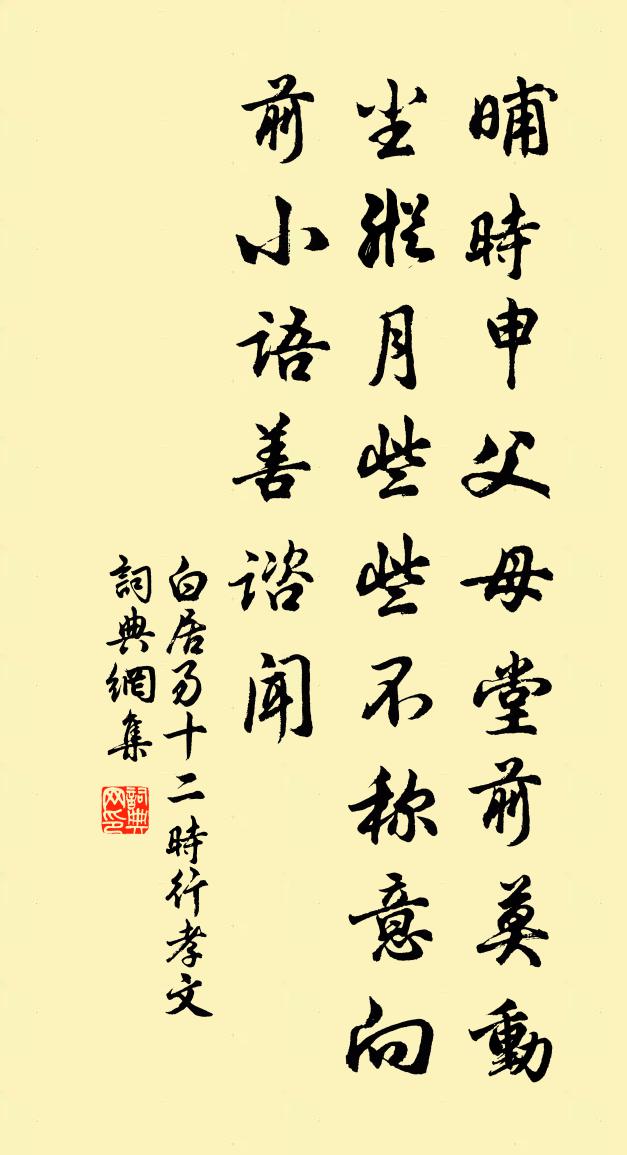 晡時申父母堂前莫動
塵縱月些些不称意向
前小語善諮闻
白居易十二時行孝文
詞典網集
詞典網印